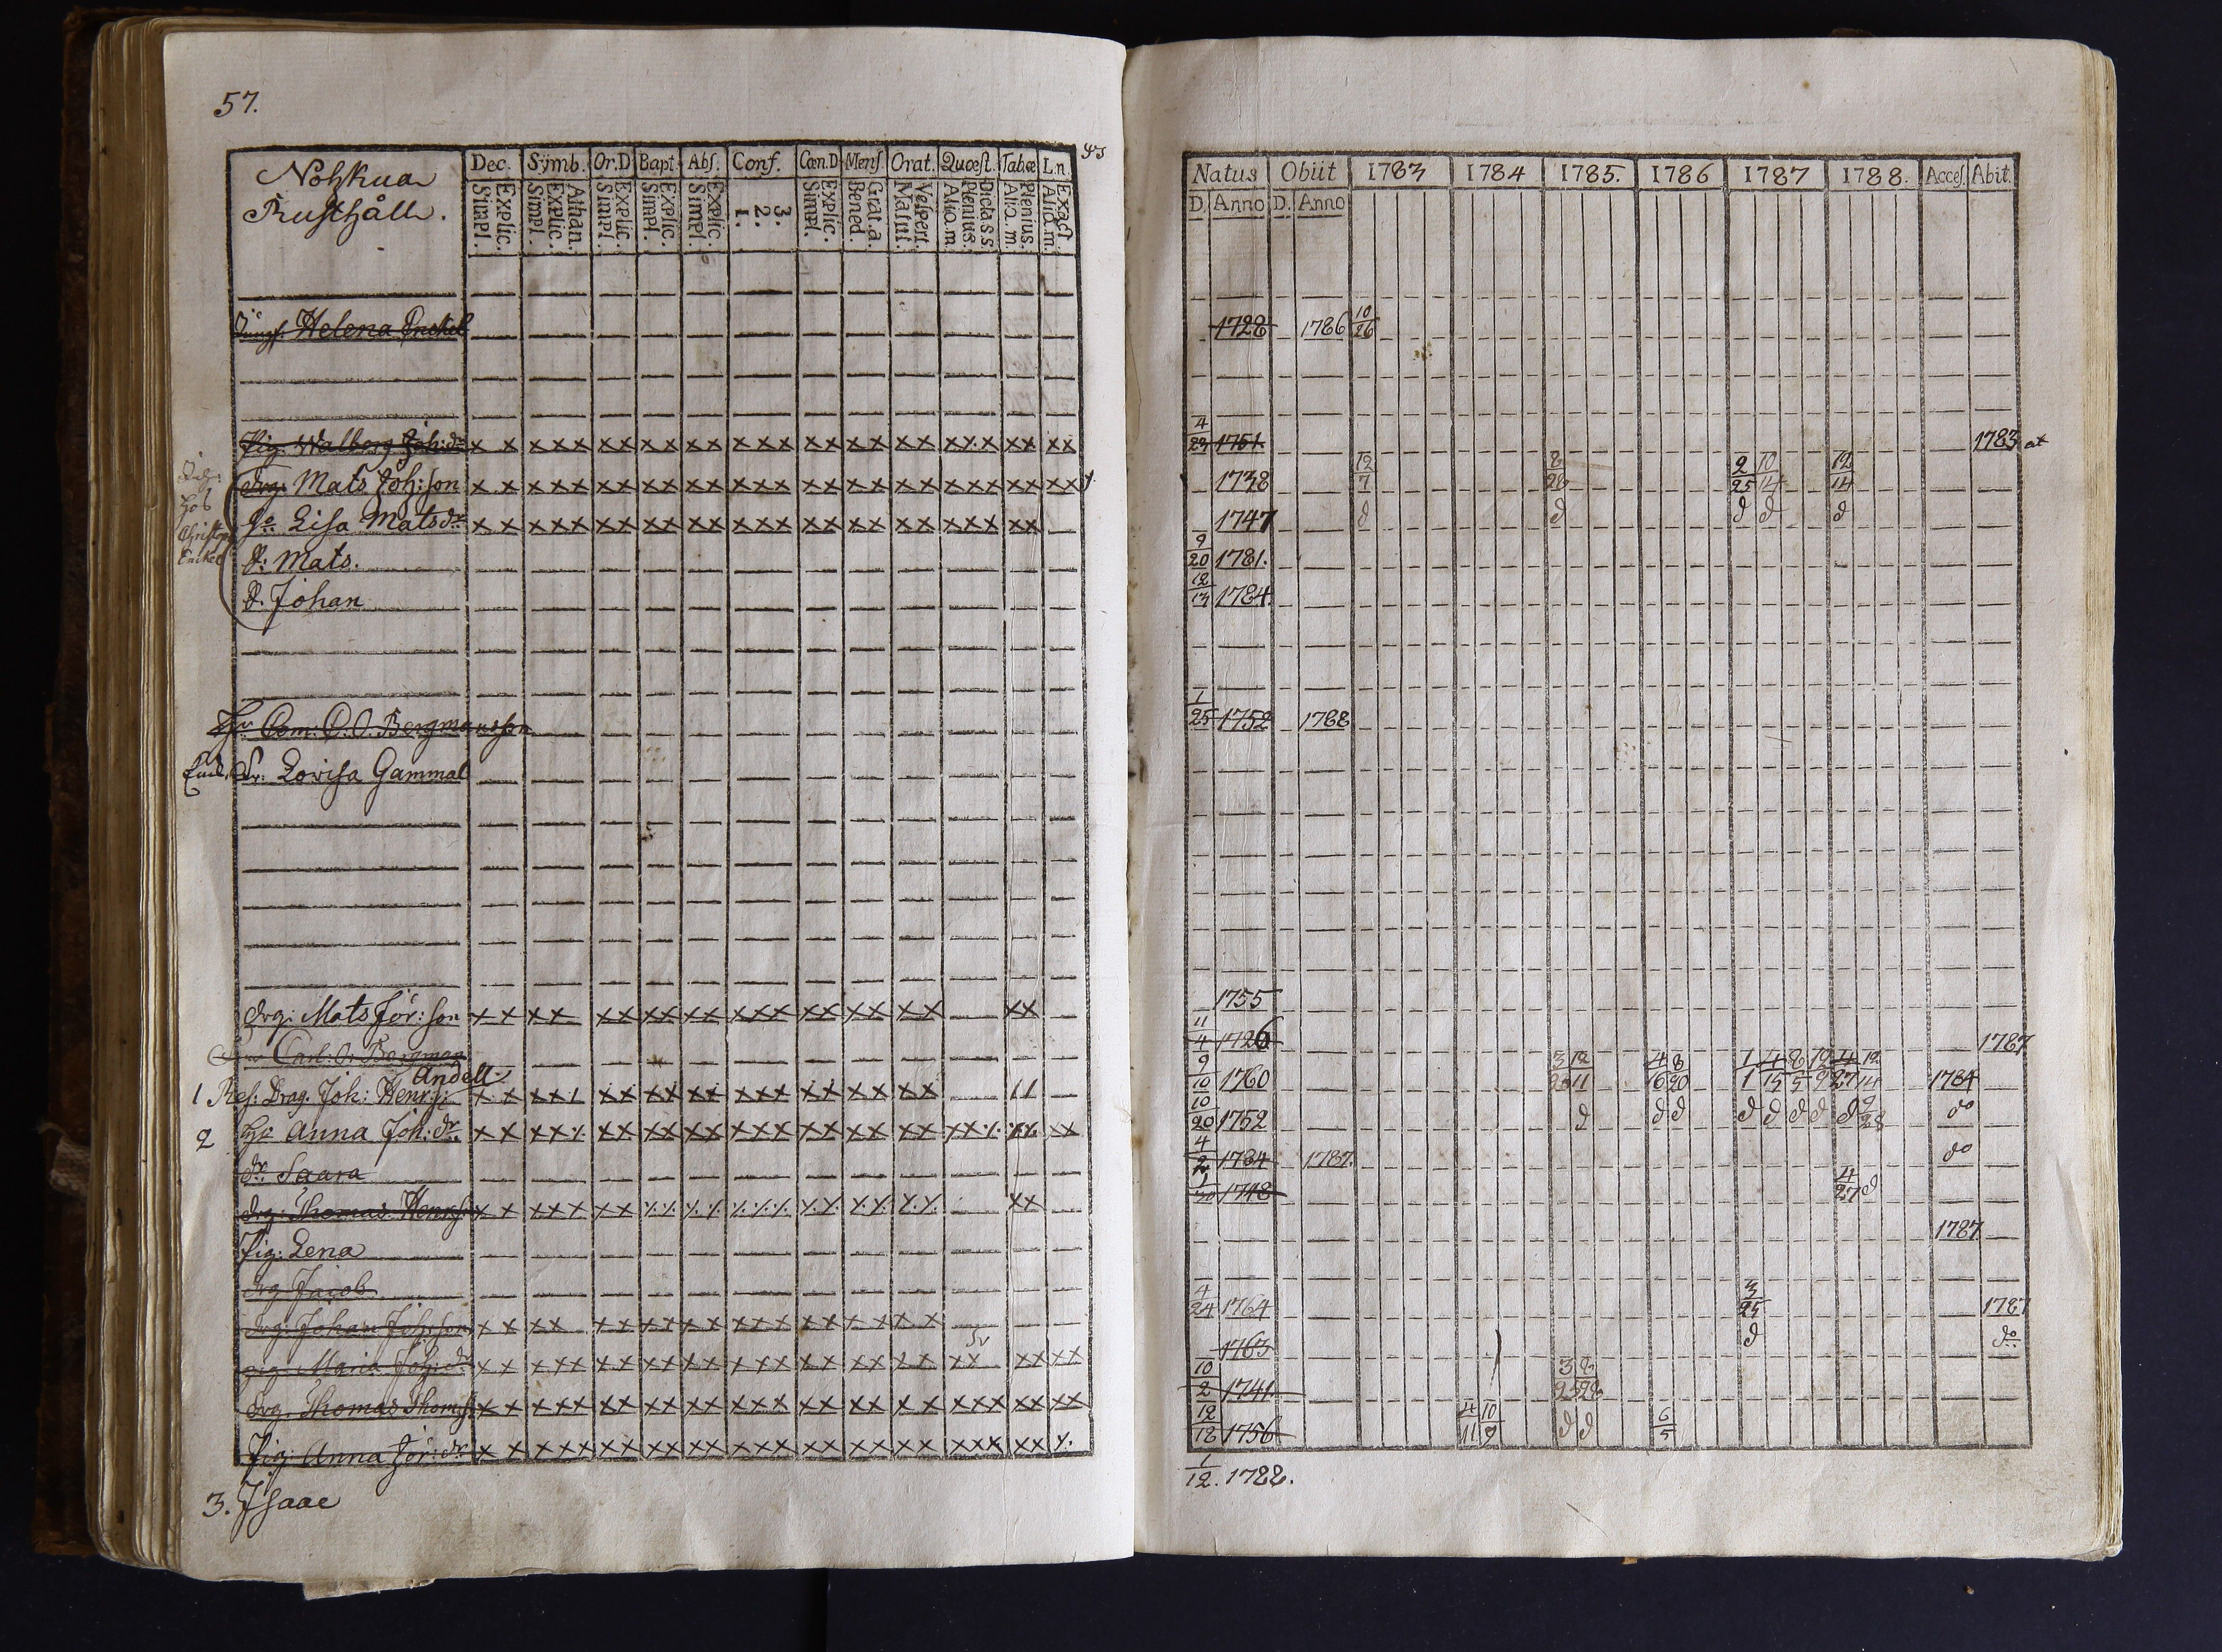 57.
Nohkua
Rusthåll.
Dec. Symb. Or.D Bapt. Abs. Conf. Cœn.D Mens. Orat. Quœst. Tabœ L.n.
Explic. Simpl. Athan. Explic. Simpl. Explic. Simpl. Explic. Simpl. Explic. Simpl. 3. 2. 1. Explic. Simpl. Grat. a. Bened. Vespert. Matut. Dicta s s. Plenius. Aliq. m. Plenius. Aliq. m. Exact. Aliq. m.
Natus Obiit 1783 1784 1785. 1786 1787 1788. Acces. Abit.
D. Anno D. Anno
Jungf. Helena Enckel 1728 1786 10/26
Pig. Walborg Joh:dr x x x x x x x x x x x x x x x x x x x x x x x x x x x 4/23 1751 1783 at
drg. Mats Joh:son x x x x x x x x x x x x x x x x x x x x x x x x x x x 1738 12/7 8/28 2/25 10/14 12/14
Lisa Matsdr x x x x x x x x x x x x x x x x x x x x x x x x x 1747 d d d d d
Christoph
Enckel
d: Mats. 9/20 1781.
d. Johan 12/13 1784.
C. O. Bergmansson 1/25 1752 1788
Enck. Fr: Lovisa Gammal
drg: Mats Jör:son x x x x x x x x x x x x x x x x x x x x x x 1755
Carl: O. Bergman 11/4 1726 1787
Andell
1 Res: Drag. Joh: Henr:s: x x x x x x x x x x x x x x x x x x x x 9/10 1760 3/25 12/11 4/16 8/20 1/1 4/15 8/5 12/9 4/27 12/14 1784
2 Anna Joh:dr. x x x x x x x x x x x x x x x x x x x x x x x x x x x 10/20 1752 d d d d d d d d 9/28 do
dr. Saara 4/2 1784 1787. do
drg: Thomas Henrs: x x x x x x x x x x x x x x x x x x x x x x 1/30 1748 4/27 d
Pig: Lena 1787
drg Jacob
drg: Johan Joh:son x x x x x x x x x x x x x x x x x x x x 4/24 1764 3/25 1787
pig: Maria Joh:dr x x x x x x x x x x x x x x x x x x x x x x x x x x 1763 d do:
drg. Thomas Thoms: x x x x x x x x x x x x x x x x x x x x x x x x x x x x 10/2 1741. 3/25 8/28
Pig: Anna Jör:dr x x x x x x x x x x x x x x x x x x x x x x x x x x x 12/18 1756 4/11 10/9 d d 6/5
3. Isaac 1/12. 1788.